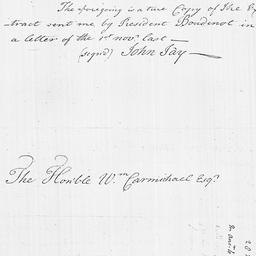 The foregoing is a true Copy of the Ex
-tract sent me by President Boudenot in
a letter of the 1st novr last —
(signd) John Jay —
The Honble Wm Carmichael Esqr